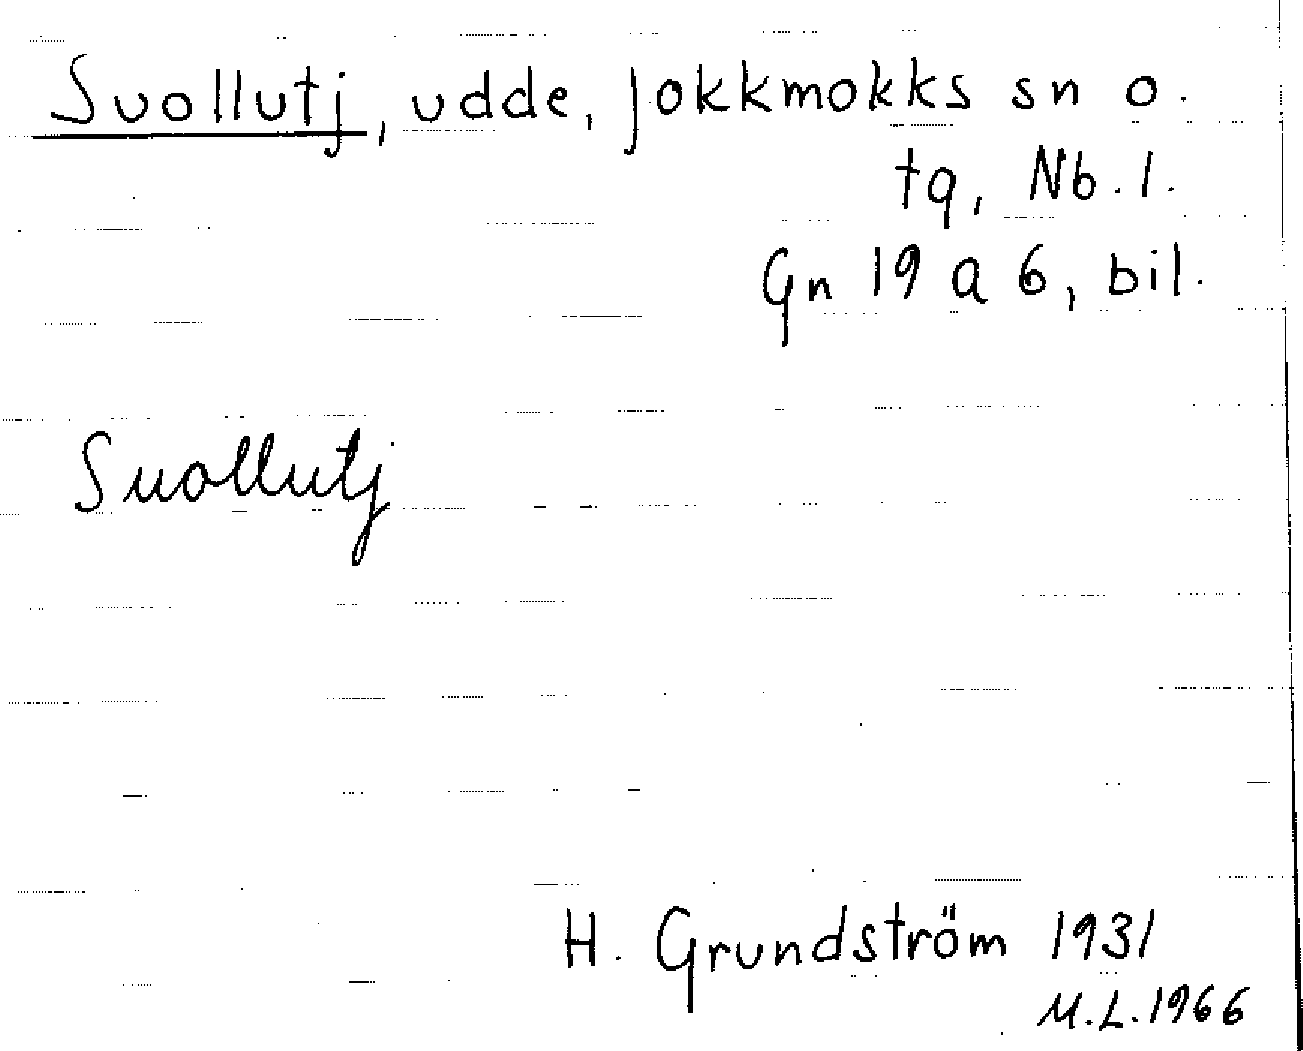 Suollutj, udde, Jokkmokks sn o.
tg, Nb. l.
Gn 19 a 6, bil.
Suollutj
H. Grundström 1931
M.L. 1966